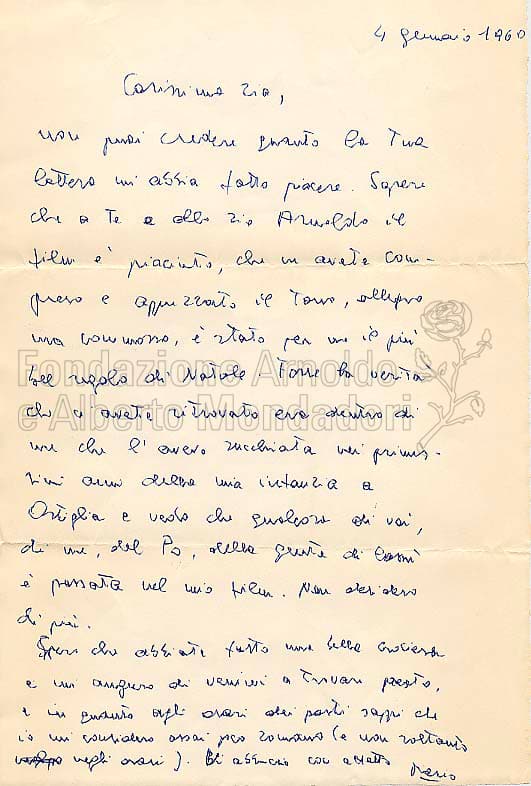 4 gennaio 1960
Carissima zia,
non puoi credere quanto la Tua
lettera mi abbia fatto piacere. Sapere
che a te e allo zio Arnoldo il
film è piaciuto, che ne avete com-
preso e apprezzato il tono, allegro
ma commosso, è stato per me il più
bel regalo di Natale. Forse la verità
che ci avete ritrovato era dentro di
me che l'avevo succhiata nei primis-
simi anni della mia infanzia a
Ostiglia e vedo che qualcosa di voi,
di me, del Po, della gente di
è passata nel mio film. Non desidero
di più.
Spero che abbiate fatto una bella crociera
e mi auguro di venirvi a trovare presto,
e in quanto agli orari dei pasti sappi che
io mi considero assai poco romano (e non soltanto
negli orari). Vi abbraccio con affetto
Mario
Fondazione Arnoldo
e Alberto Mondadori